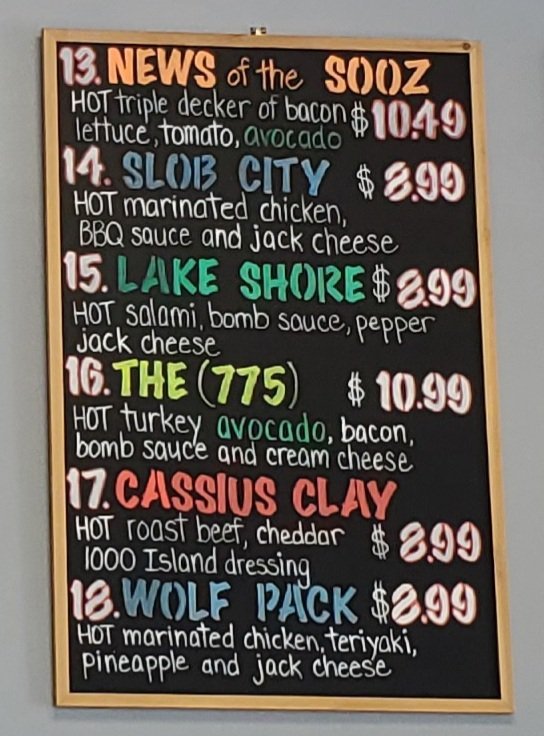 13. NEWS of the SOOZ
HOT triple decker of bacon $10.49
lettuce, tomato, avocado
14. SLOB CITY $ 8.99
HOT marinated chicken,
BBQ sauce and jack cheese
15. LAKE SHORE $ 8.99
HOT salami, bomb sauce, pepper
jack cheese
16. THE (775) $ 10.99
HOT turkey avocado, bacon,
bomb sauce and cream cheese
17. CASSIUS CLAY
HOT roast beef, cheddar $ 8.99
1000 Island dressing
18. WOLF PACK $8.99
HOT marinated chicken, teriyaki,
pineapple and jack cheese